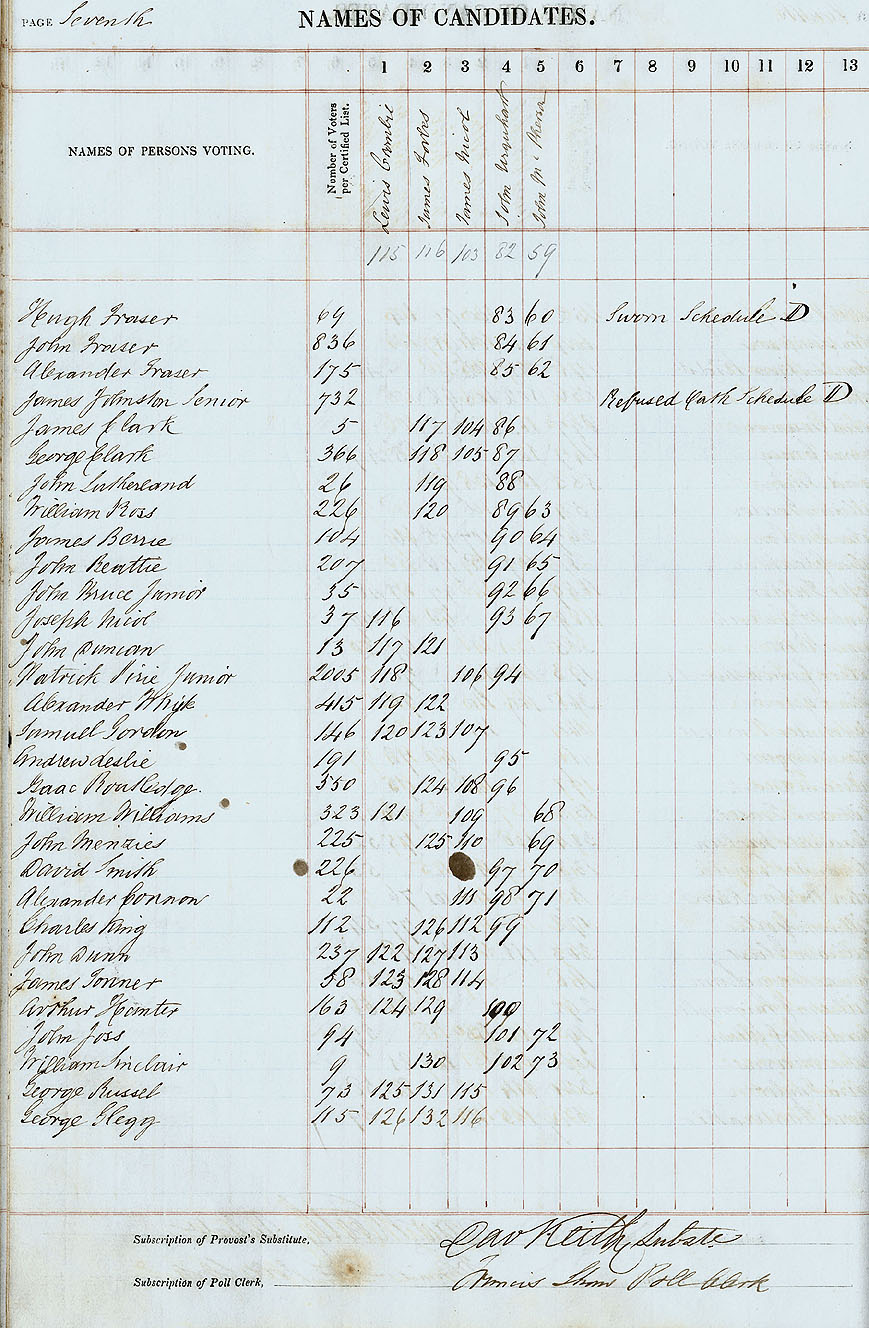 PAGE Seventh
NAMES OF CANDIDATES.
1 2 3 4 5 6 7 8 9 10 11 12 13
NAMES OF PERSONS VOTING.
Number of Voters
per Certified List.
Lewis Crombie
James Forbes
James Nicol
John Urquhart
John McPherson
115 116 103 82 59
Hugh Fraser 69 83 60 Sworn Schedule D
John Fraser 836 84 61
Alexander Fraser 175 85 62
James Johnston Senior 732 Refused Oath Schedule D
James Clark 5 117 104 86
George Clark 366 118 105 87
John Sutherland 26 119 88
William Ross 226 120 89 63
James Berrie 104 90 64
John Beattie 207 91 65
John Bruce Junior 35 92 66
Joseph Nicol 37 116 93 67
John Duncan 13 117 121
Patrick Pirie Junior 2005 118 106 94
Alexander Whyte 415 119 122
Samuel Gordon 146 120 123 107
Andrew Leslie 191 95
Isaac Routledge. 550 124 108 96
William Williams 323 121 109 68
John Menzies 225 125 110 69
David Smith 226 97 70
Alexander Connon 22 111 98 71
Charles King 112 126 112 99
John Dunn 237 122 127 113
James Tonner 58 123 128 114
Arthur Hunter 163 124 129 100
John Joss 94 101 72
William Sinclair 9 130 102 73
George Russel 73 125 131 115
George Glegg 115 126 132 116
Subscription of Provost's Substitute, Dav Keith, Subste.
Subscription of Poll Clerk, Francis Shaw Poll Clerk